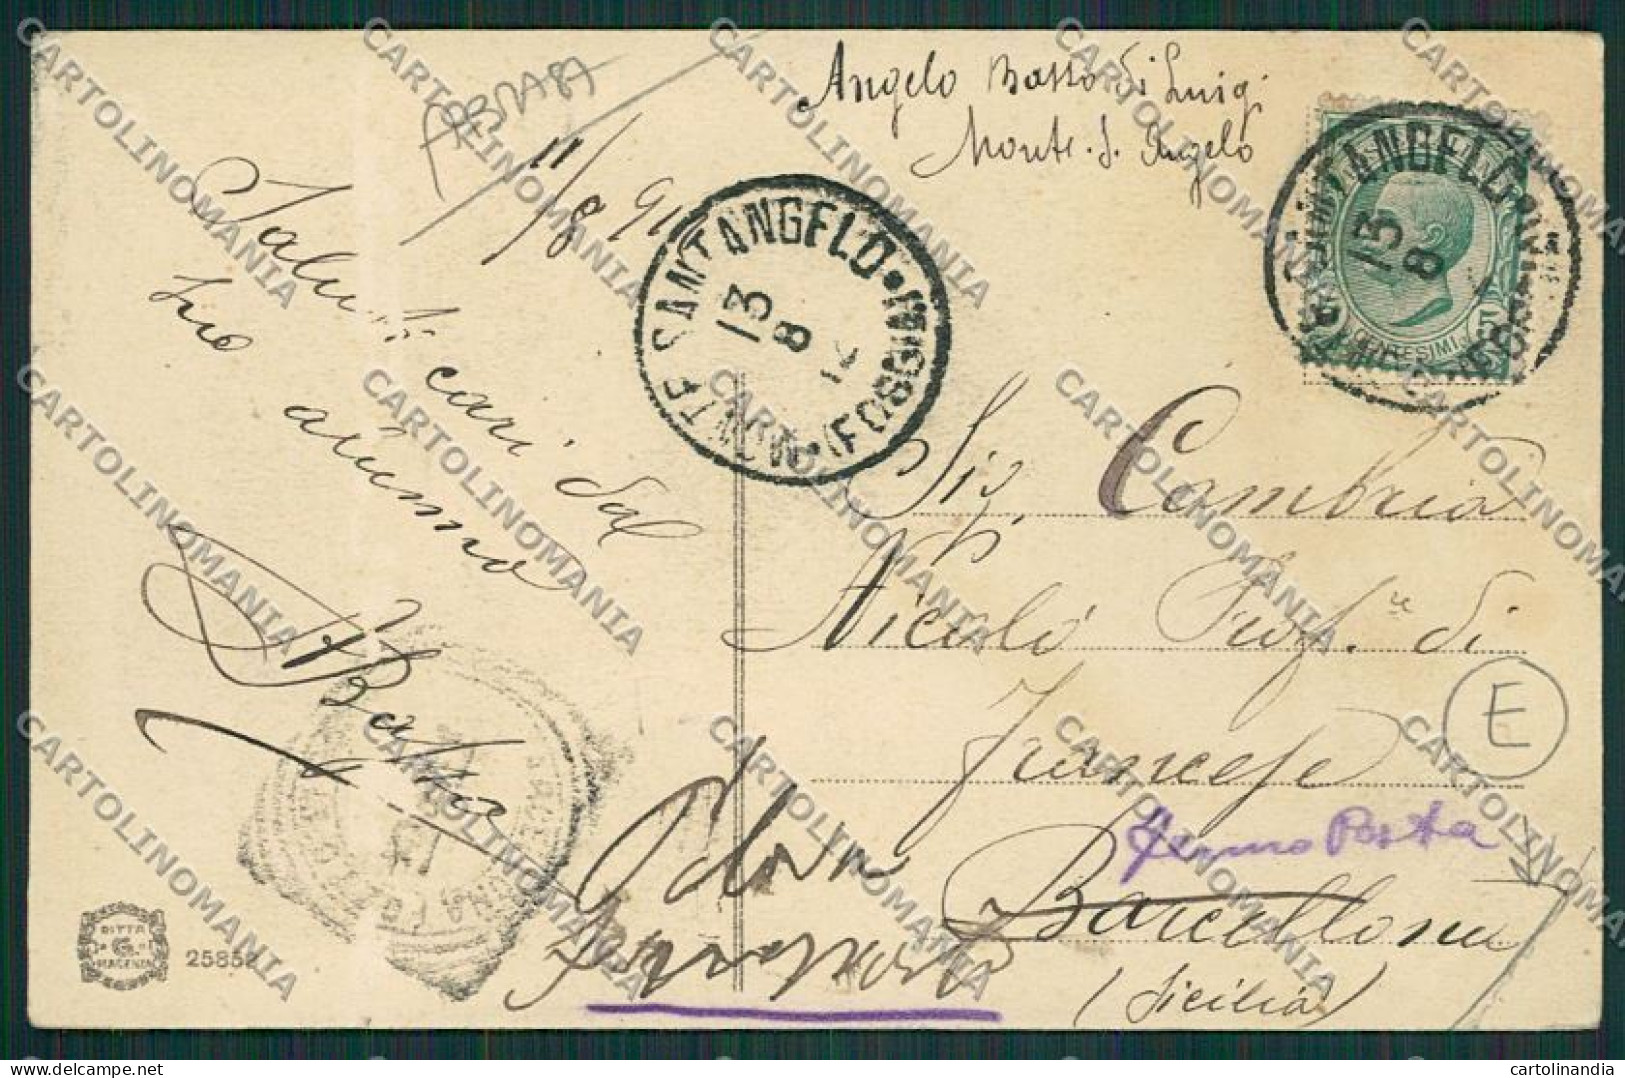 Angelo Basso di Luigi
Monte. S. Angelo
FOGGIA 87
11/8 911
Saluti cari dal
suo alunno
ABasso
MONTE SANT'ANGELO (FOGGIA)
13 8
MONTE SANT'ANGELO (FOGGIA)
13 8
CENTESIMI
Sig. Cambria
Nicolò Prof.re di
Francese
Fermo Posta
Barcellona
(Sicilia)
E
Fermo posta
DITTA
G.
PIACENZA
25852
CARTOLINOMANIA
cartolinandia